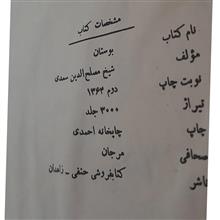 مشخصات کتاب
نام کتاب بوستان
مؤلف شیخ مصلح‌الدین سعدی
نوبت چاپ دوم ۱۳۶۴
تیراژ ۳۰۰۰ جلد
چاپ چاپخانه احمدی
صحافی مرجان
ناشر کتابفروشی حنفی ـ زاهدان